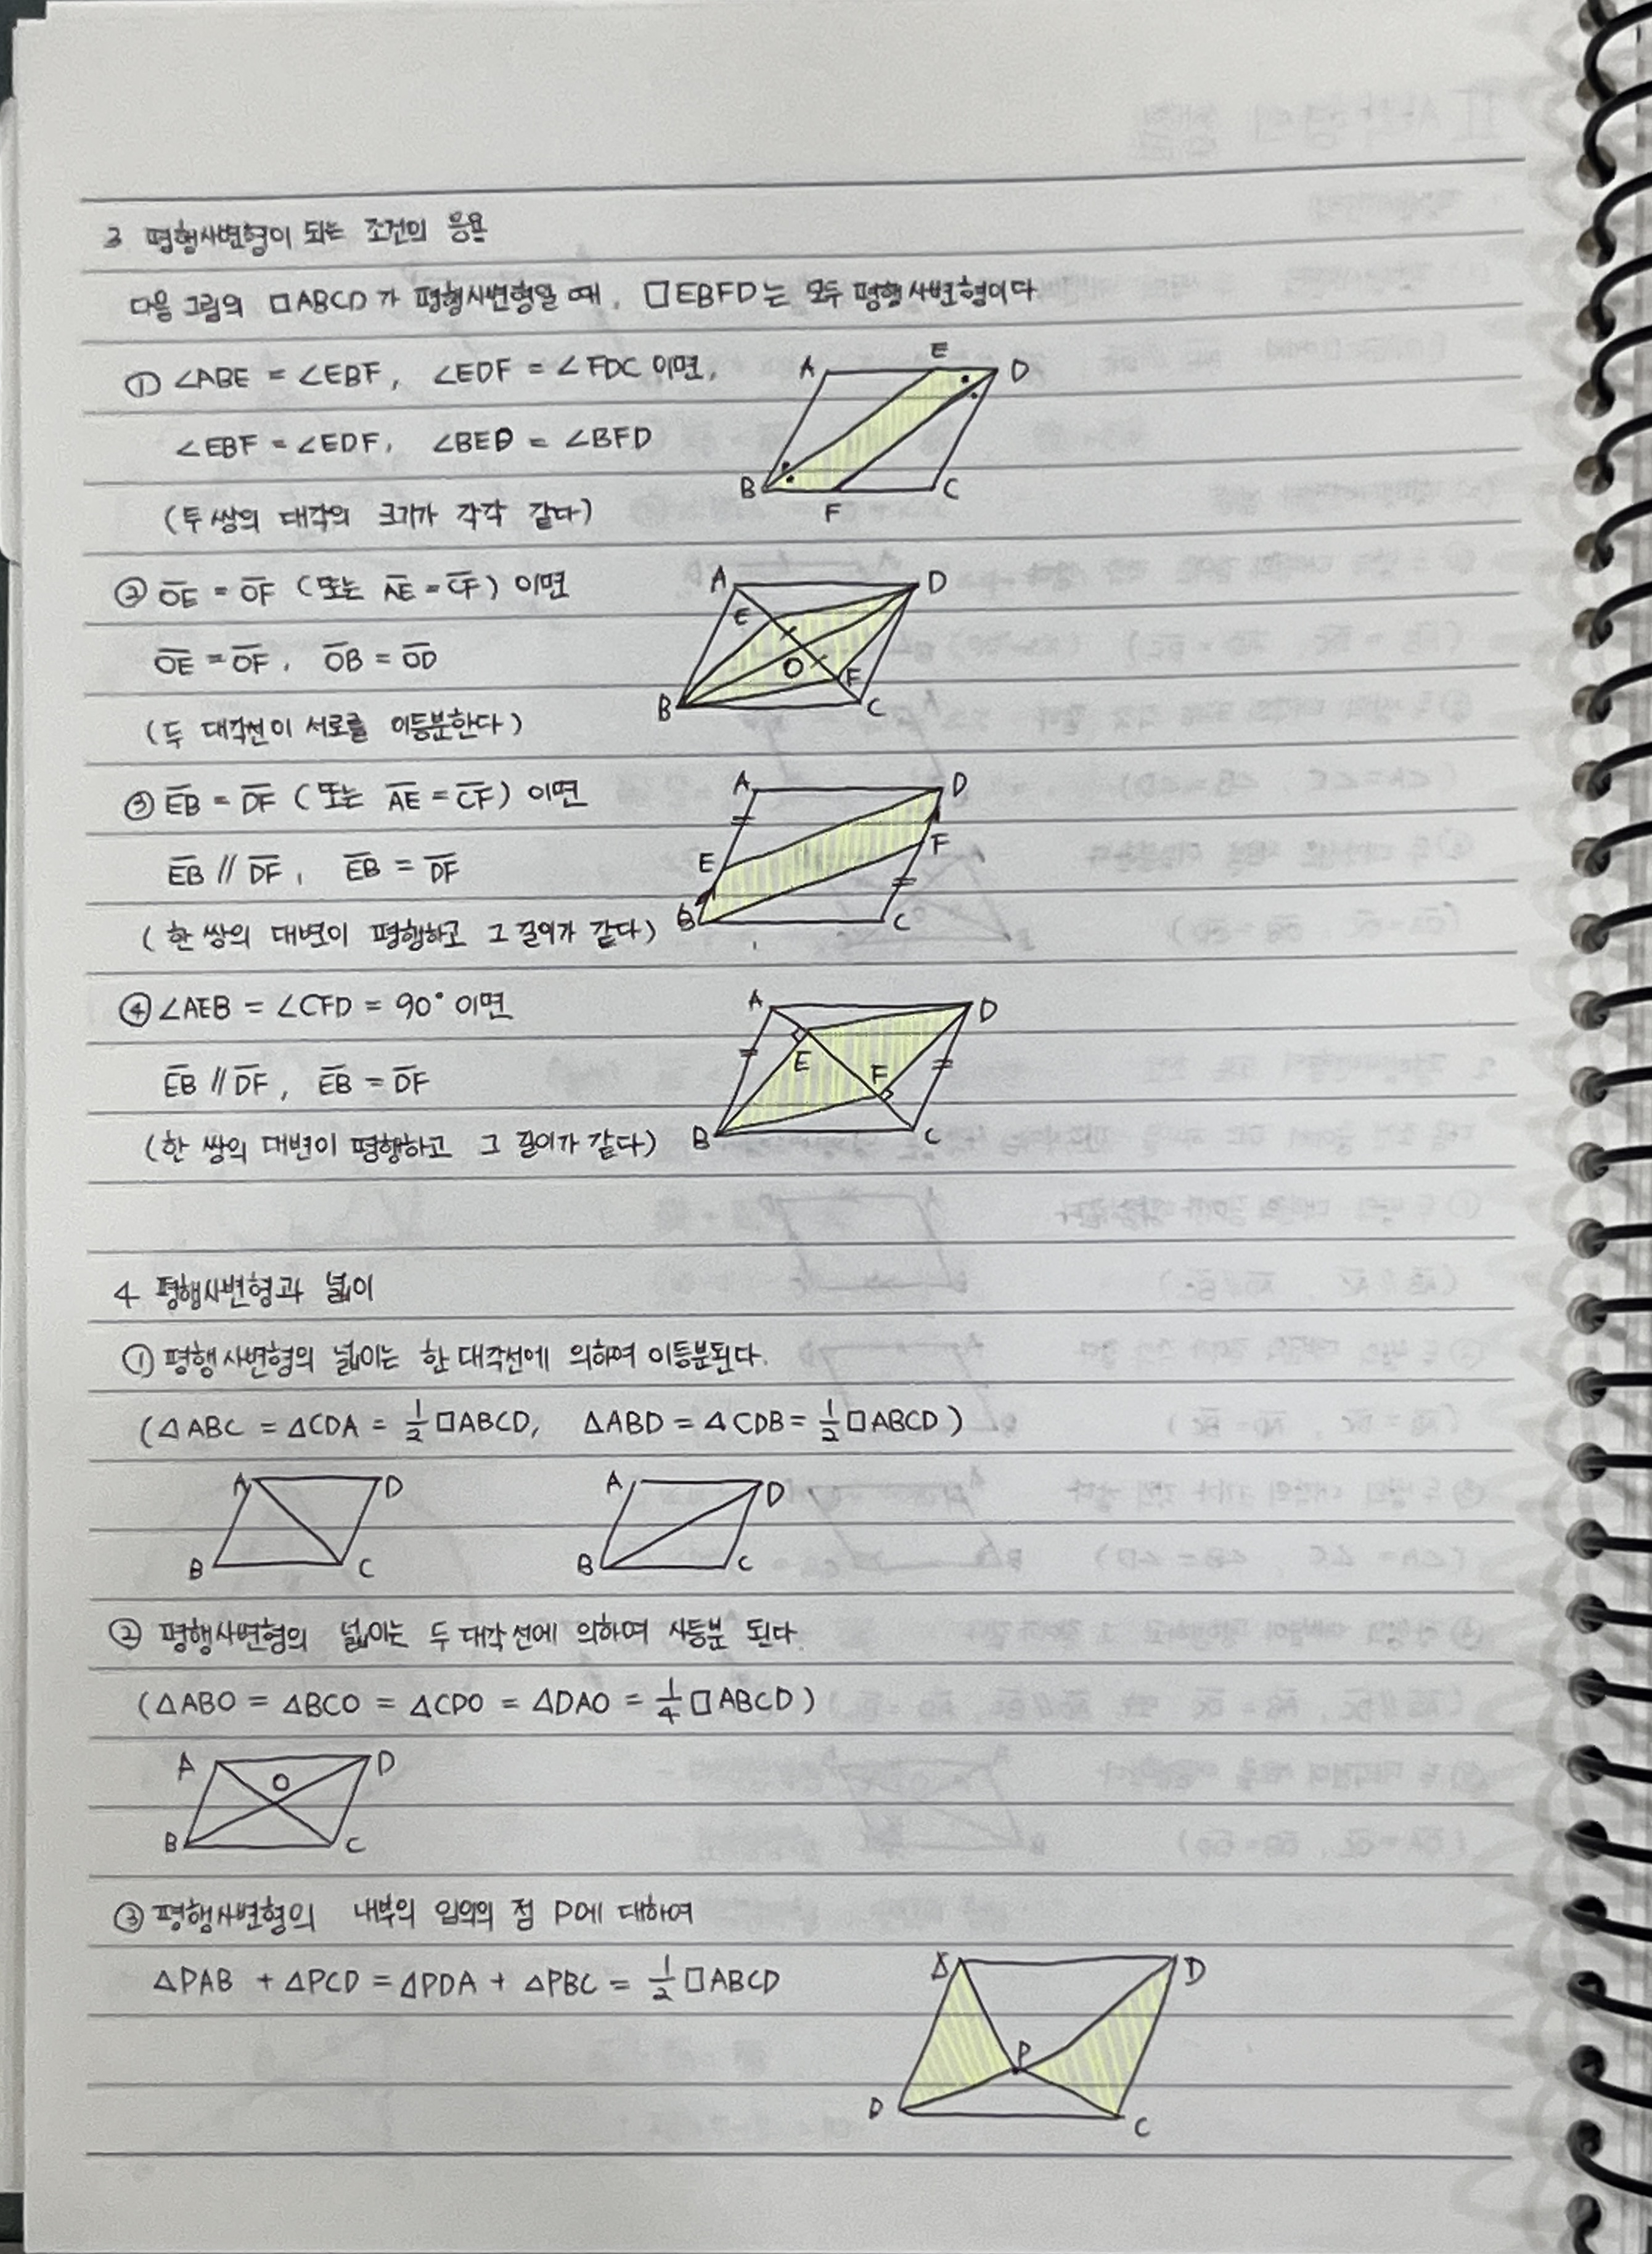 3 평행사변형이 되는 조건의 응용
다음 그림의 □ABCD가 평행사변형일 때, □EBFD는 모두 평행사변형이다
① ∠ABE = ∠EBF, ∠EDF = ∠FDC 이면,
A E D
∠EBF = ∠EDF, ∠BED = ∠BFD
B F C
(두 쌍의 대각의 크기가 각각 같다)
② O̅E̅ = O̅F̅ (또는 A̅E̅ = C̅F̅) 이면
A D
E
O̅E̅ = O̅F̅, O̅B̅ = O̅D̅
O F
B C
(두 대각선이 서로를 이등분한다)
③ E̅B̅ = D̅F̅ (또는 A̅E̅ = C̅F̅) 이면
A D
E̅B̅ // D̅F̅, E̅B̅ = D̅F̅
E F
B C
(한 쌍의 대변이 평행하고 그 길이가 같다)
④ ∠AEB = ∠CFD = 90° 이면
A D
E F
E̅B̅ // D̅F̅, E̅B̅ = D̅F̅
B C
(한 쌍의 대변이 평행하고 그 길이가 같다)
4 평행사변형과 넓이
① 평행사변형의 넓이는 한 대각선에 의하여 이등분된다.
(△ABC = △CDA = 1/2 □ABCD, △ABD = △CDB = 1/2 □ABCD)
A D A D
B C B C
② 평행사변형의 넓이는 두 대각선에 의하여 사등분 된다.
(△ABO = △BCO = △CDO = △DAO = 1/4 □ABCD)
A O D
B C
③ 평행사변형의 내부의 임의의 점 P에 대하여
△PAB + △PCD = △PDA + △PBC = 1/2 □ABCD
A D
P
D C